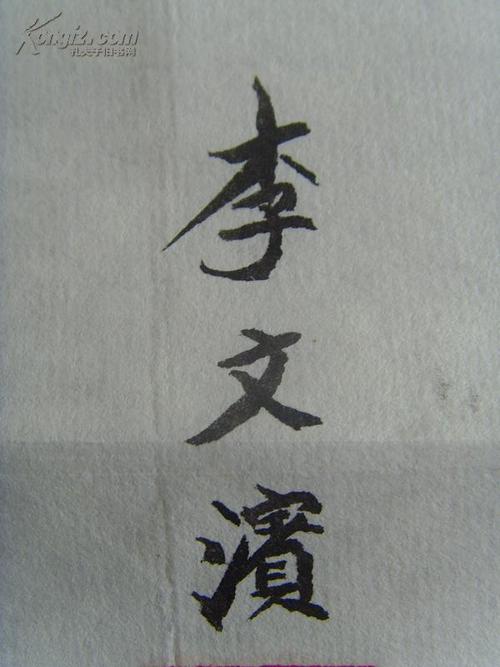 Kongfz.com
孔夫子旧书网
李文濱